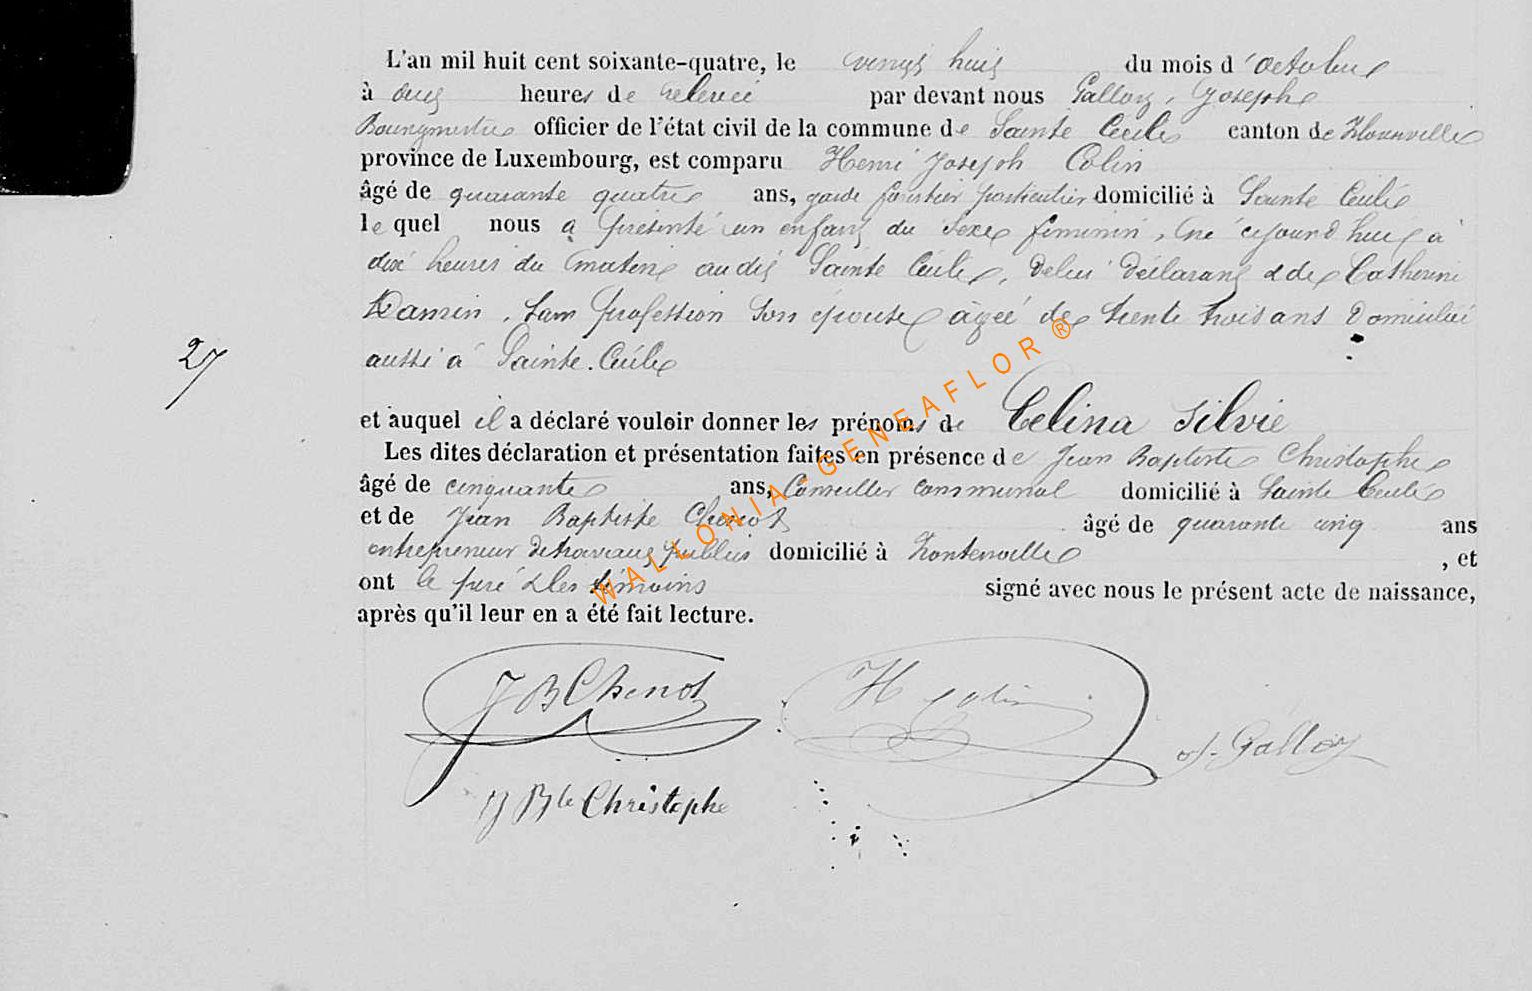 L'an mil huit cent soixante-quatre, le vingt huit du mois d'octobre
à deux heures de relevée par devant nous Galloy, Joseph
Bourgmestre officier de l'état civil de la commune de Sainte Cécile canton de Florenville
province de Luxembourg, est comparu Henri Joseph Colin
âgé de quarante quatre ans, garde forestier particulier domicilié à Sainte Cécile
le quel nous a présenté un enfant du sexe féminin, né cejourd'hui à
dix heures du matin audit Sainte Cécile, de lui déclarant & de Catherine
Damin, sans profession son épouse âgée de trente trois ans domiciliée
27
aussi à Sainte-Cécile
et auquel il a déclaré vouloir donner les prénoms de Celina Silvie
Les dites déclaration et présentation faites en présence de Jean Baptiste Christophe
âgé de cinquante ans, Conseiller communal domicilié à Sainte Cécile
et de Jean Baptiste Chenot âgé de quarante cinq ans
entrepreneur de travaux publics domicilié à Fontenoille , et
ont le père & les témoins signé avec nous le présent acte de naissance,
après qu'il leur en a été fait lecture.
J B Chenot H Colin J. Galloy
J Bte Christophe
WALLONIA-GENEAFLOR ®